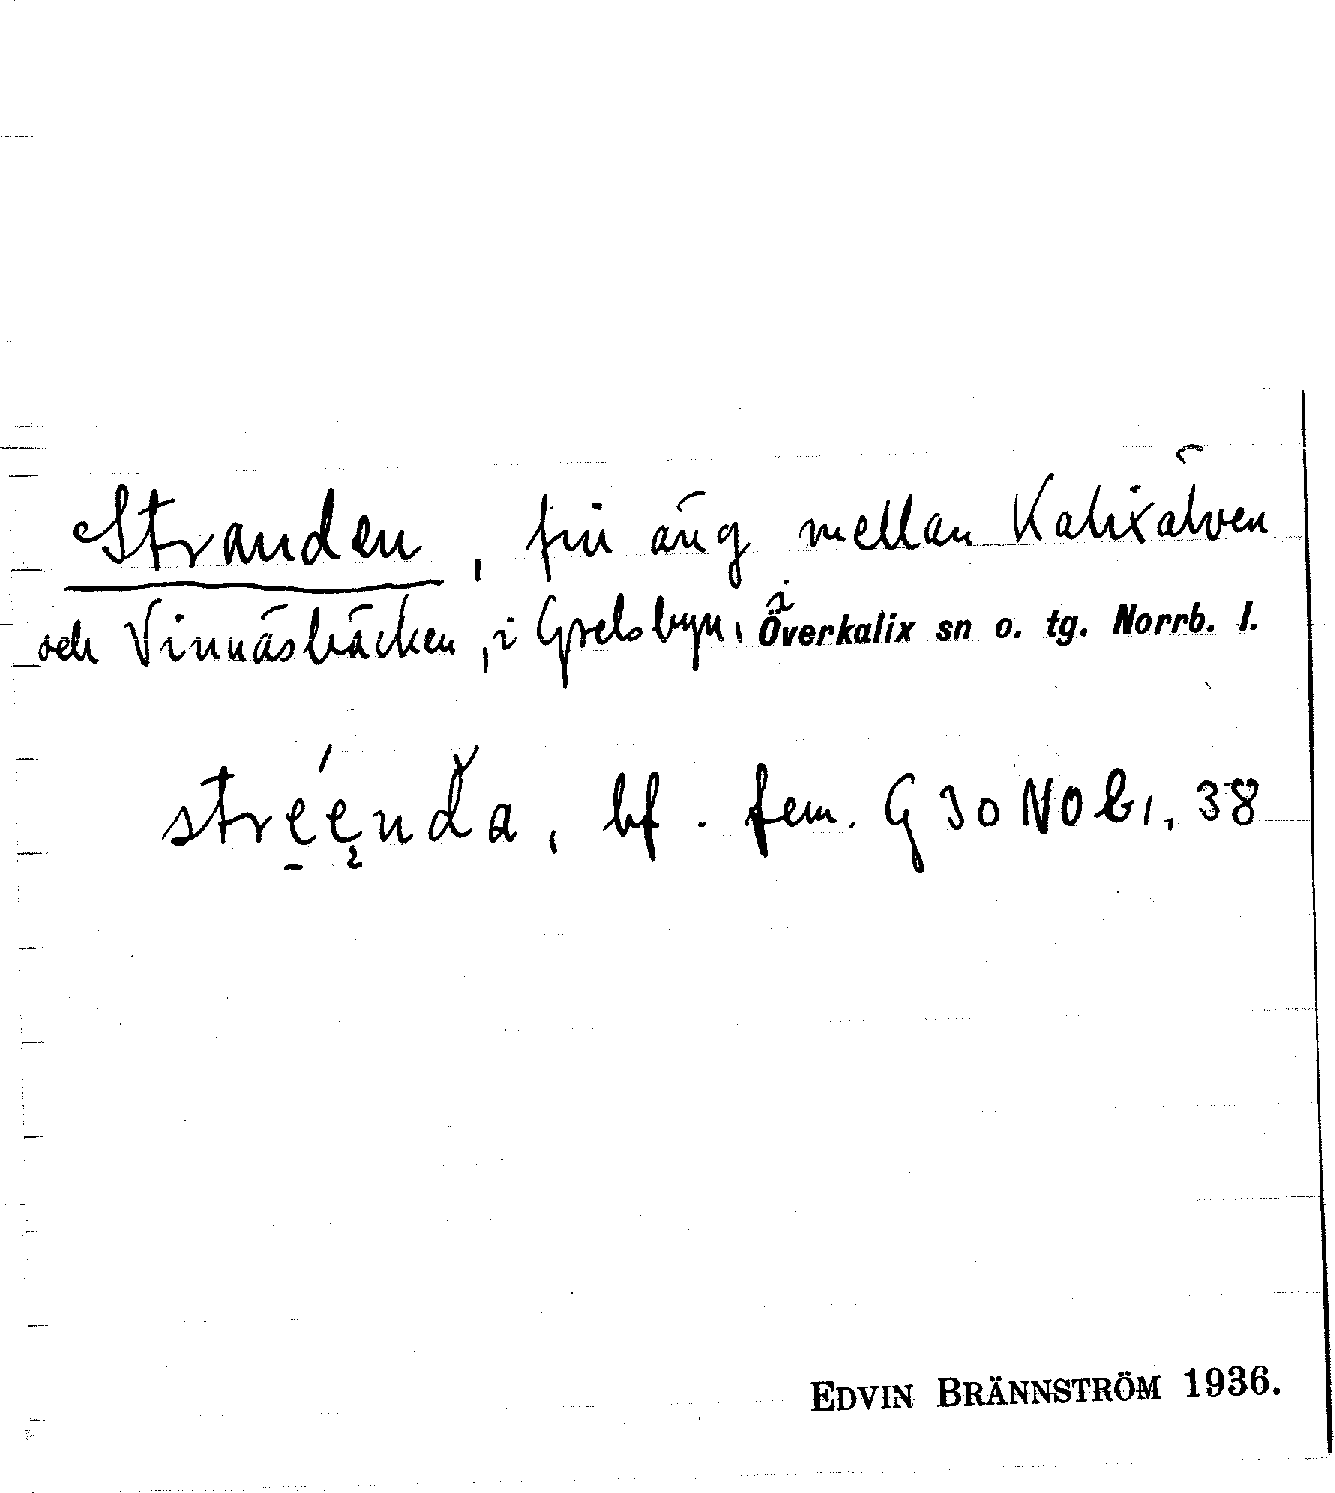 Stranden, fin äng mellan Kalixälven
och Vinnäsbäcken, i Grelsbyn, i Överkalix sn o. tg. Norrb. l.
stre̱ę́nda, bf. fem. G 30 NO b1, 38
EDVIN BRÄNNSTRÖM 1936.